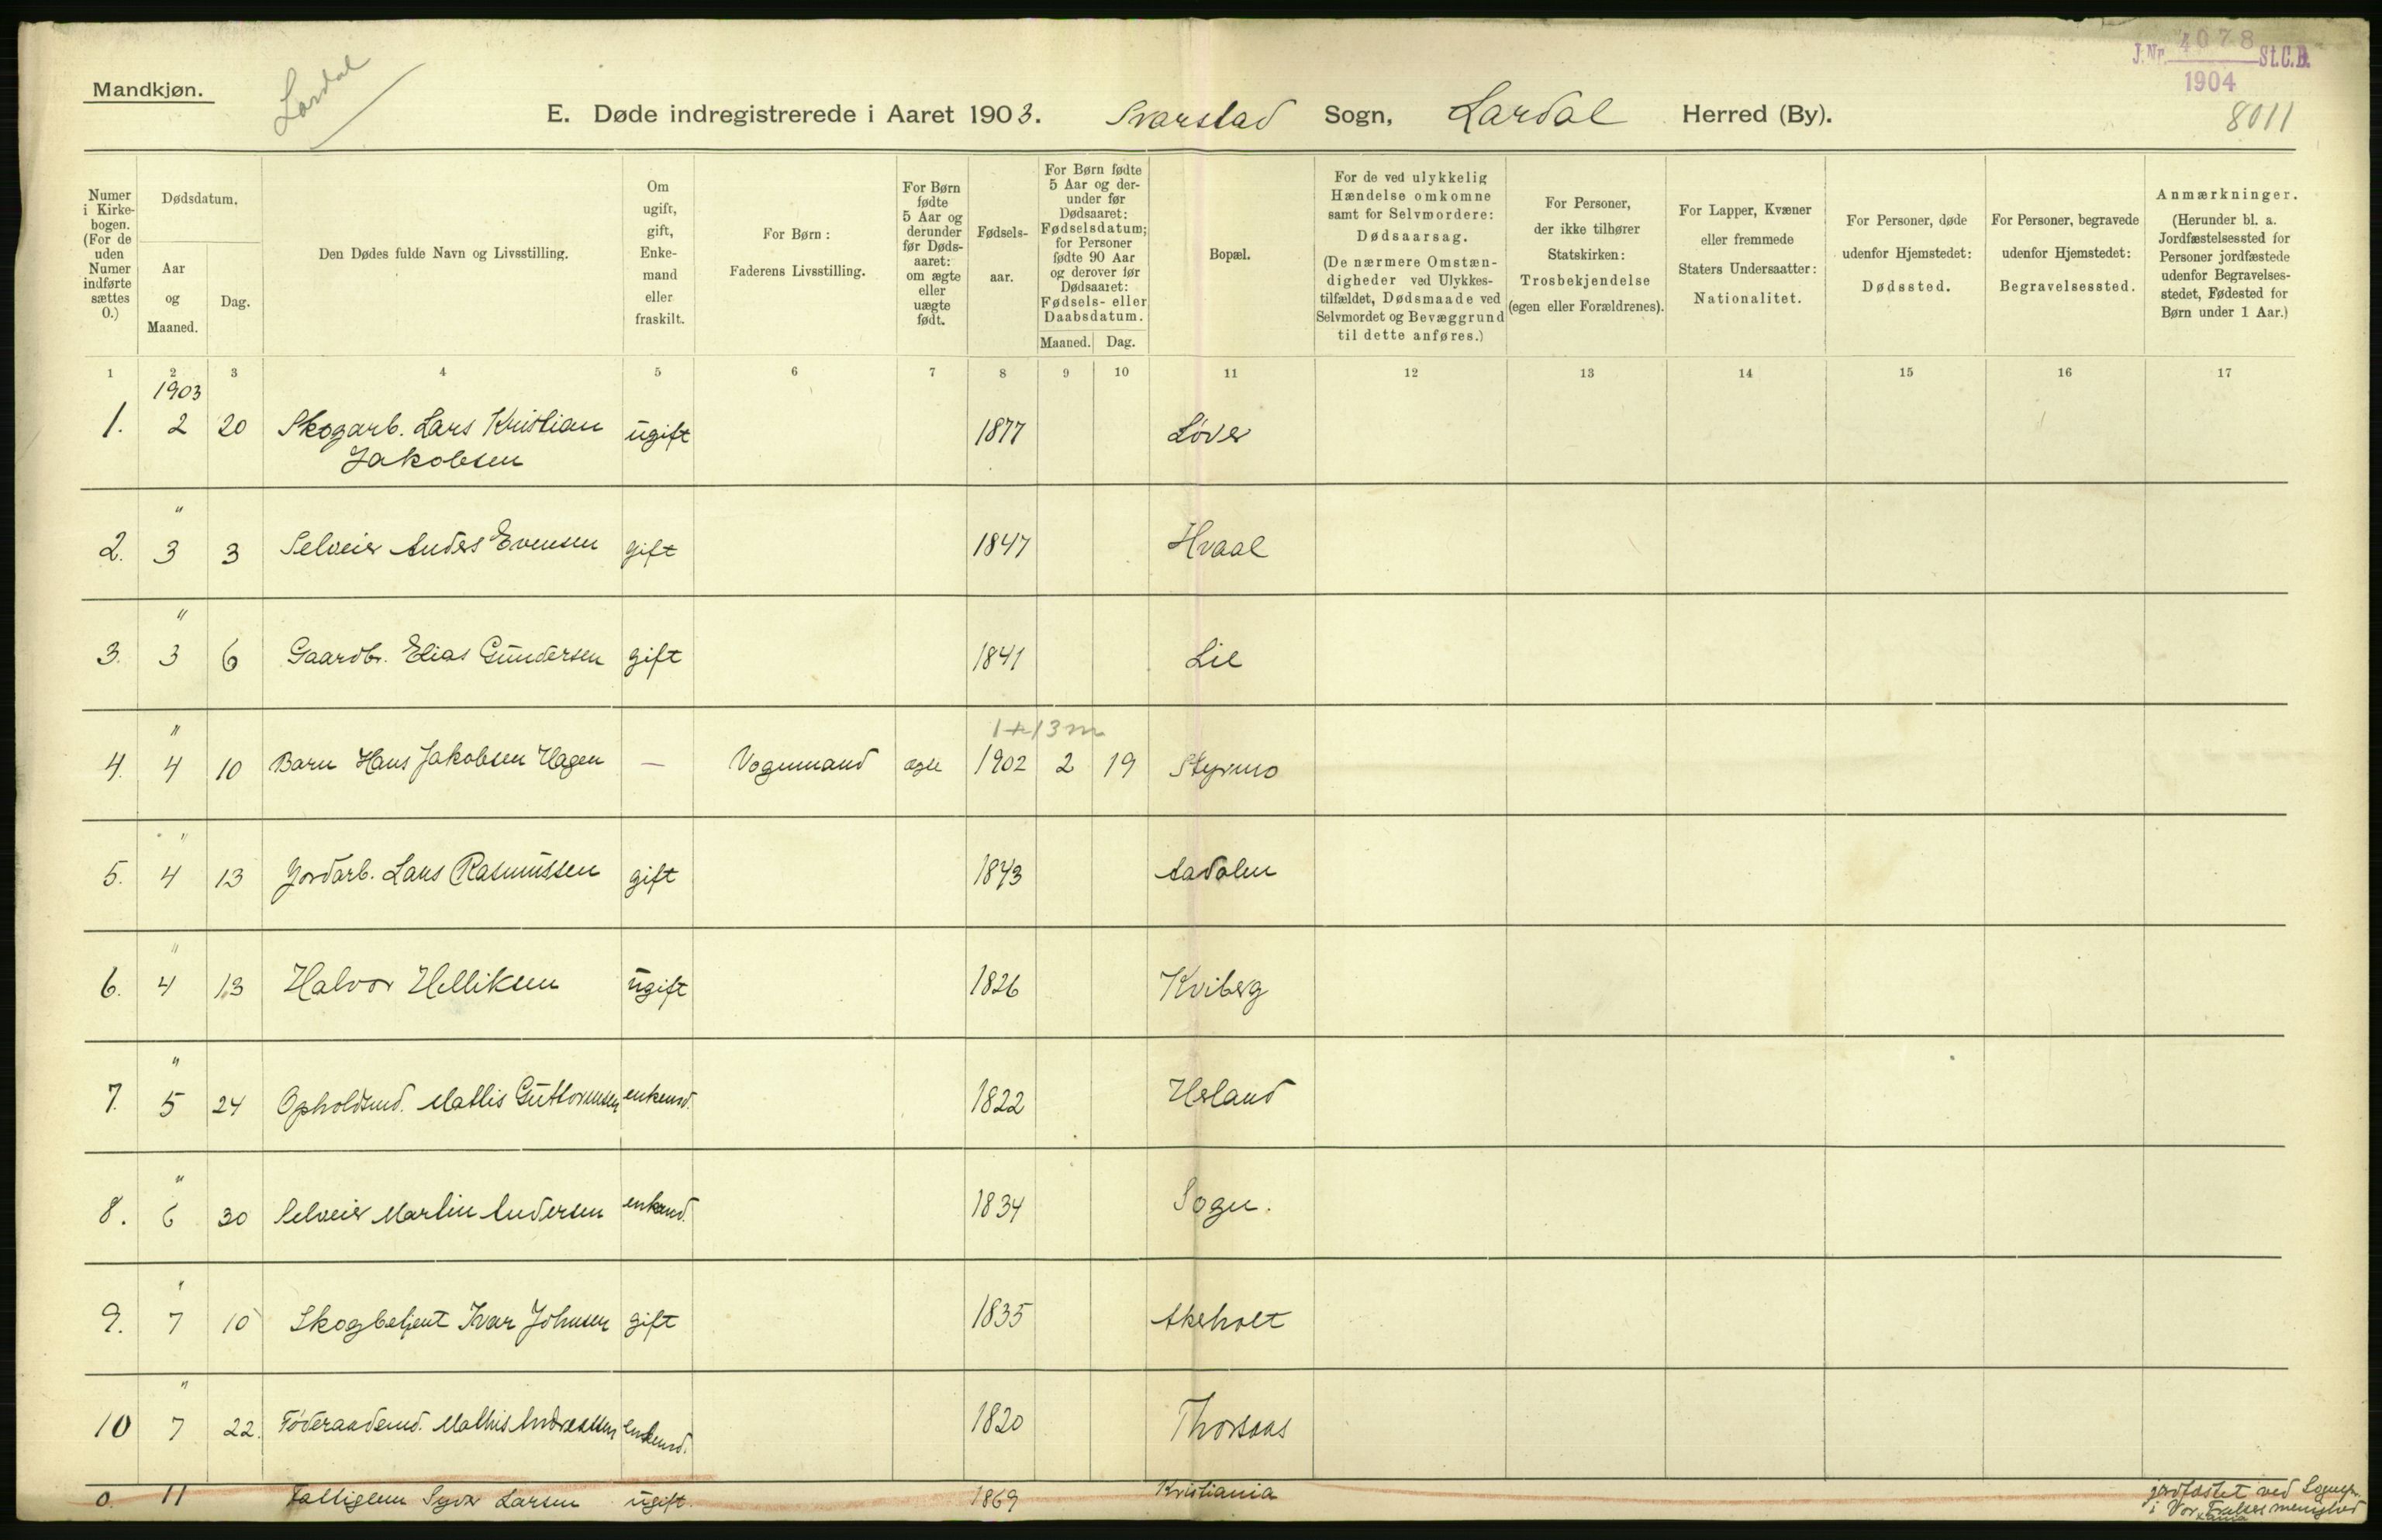 Mandkjøn.
Lardal
E. Døde indregistrerede i Aaret 1903. Svarstad Sogn, Lardal Herred (By).
J.Nr. 4078 St.C.B.
1904
8011
Numer i Kirkebogen. (For de uden Numer indførte sættes 0.)
Dødsdatum.
Aar og Maaned.
Dag.
Den Dødes fulde Navn og Livsstilling.
Om ugift, gift, Enkemand eller fraskilt.
For Børn: Faderens Livsstilling.
For Børn fødte 5 Aar og derunder før Dødsaaret: om ægte eller uægte født.
Fødselsaar.
For Børn fødte 5 Aar og derunder før Dødsaaret: Fødselsdatum; for Personer fødte 90 Aar og derover før Dødsaaret: Fødsels- eller Daabsdatum.
Maaned. Dag.
Bopæl.
For de ved ulykkelig Hændelse omkomne samt for Selvmordere: Dødsaarsag. (De nærmere Omstændigheder ved Ulykkestilfældet, Dødsmaade ved Selvmordet og Bevæggrund til dette anføres.)
For Personer, der ikke tilhører Statskirken: Trosbekjendelse (egen eller Forældrenes).
For Lapper, Kvæner eller fremmede Staters Undersaatter: Nationalitet.
For Personer, døde udenfor Hjemstedet: Dødssted.
For Personer, begravede udenfor Hjemstedet: Begravelsessted.
Anmærkninger. (Herunder bl. a. Jordfæstelsessted for Personer jordfæstede udenfor Begravelsesstedet, Fødested for Børn under 1 Aar.)
1 2 3 4 5 6 7 8 9 10 11 12 13 14 15 16 17
1903
1. 2 20 Skogarb. Lars Kristian ugift 1877 Løver
Jakobsen
"
2. 3 3 Selveier Anders Evensen gift 1847 Hvaal
"
3. 3 6 Gaardbr. Elias Gundersen gift 1841 Lie
" 1+13m
4. 4 10 Barn Hans Jakobsen Hagen — Vognmand ægte 1902 2 19 Styrmo
"
5. 4 13 Jordarb. Lars Rasmussen gift 1843 Aadalen
"
6. 4 13 Halvor Helliksen ugift 1826 Kviberg
"
7. 5 24 Opholdsmd. Mathis Guttormsen enkemd. 1822 Heland
"
8. 6 30 Selveier Martin Andersen enkemd. 1834 Sogn.
"
9. 7 10 Skogbetjent Ivar Johnsen gift 1835 Akerholt
"
10 7 22. Føderaadsmd. Mathis Andreassen enkemd. 1820 Thorsaas
0. 11 Fattiglem Syver Larsen ugift. 1869 Kristiania jordfæstet ved Sognepr.
i Vor Frelsers menighed
Kania